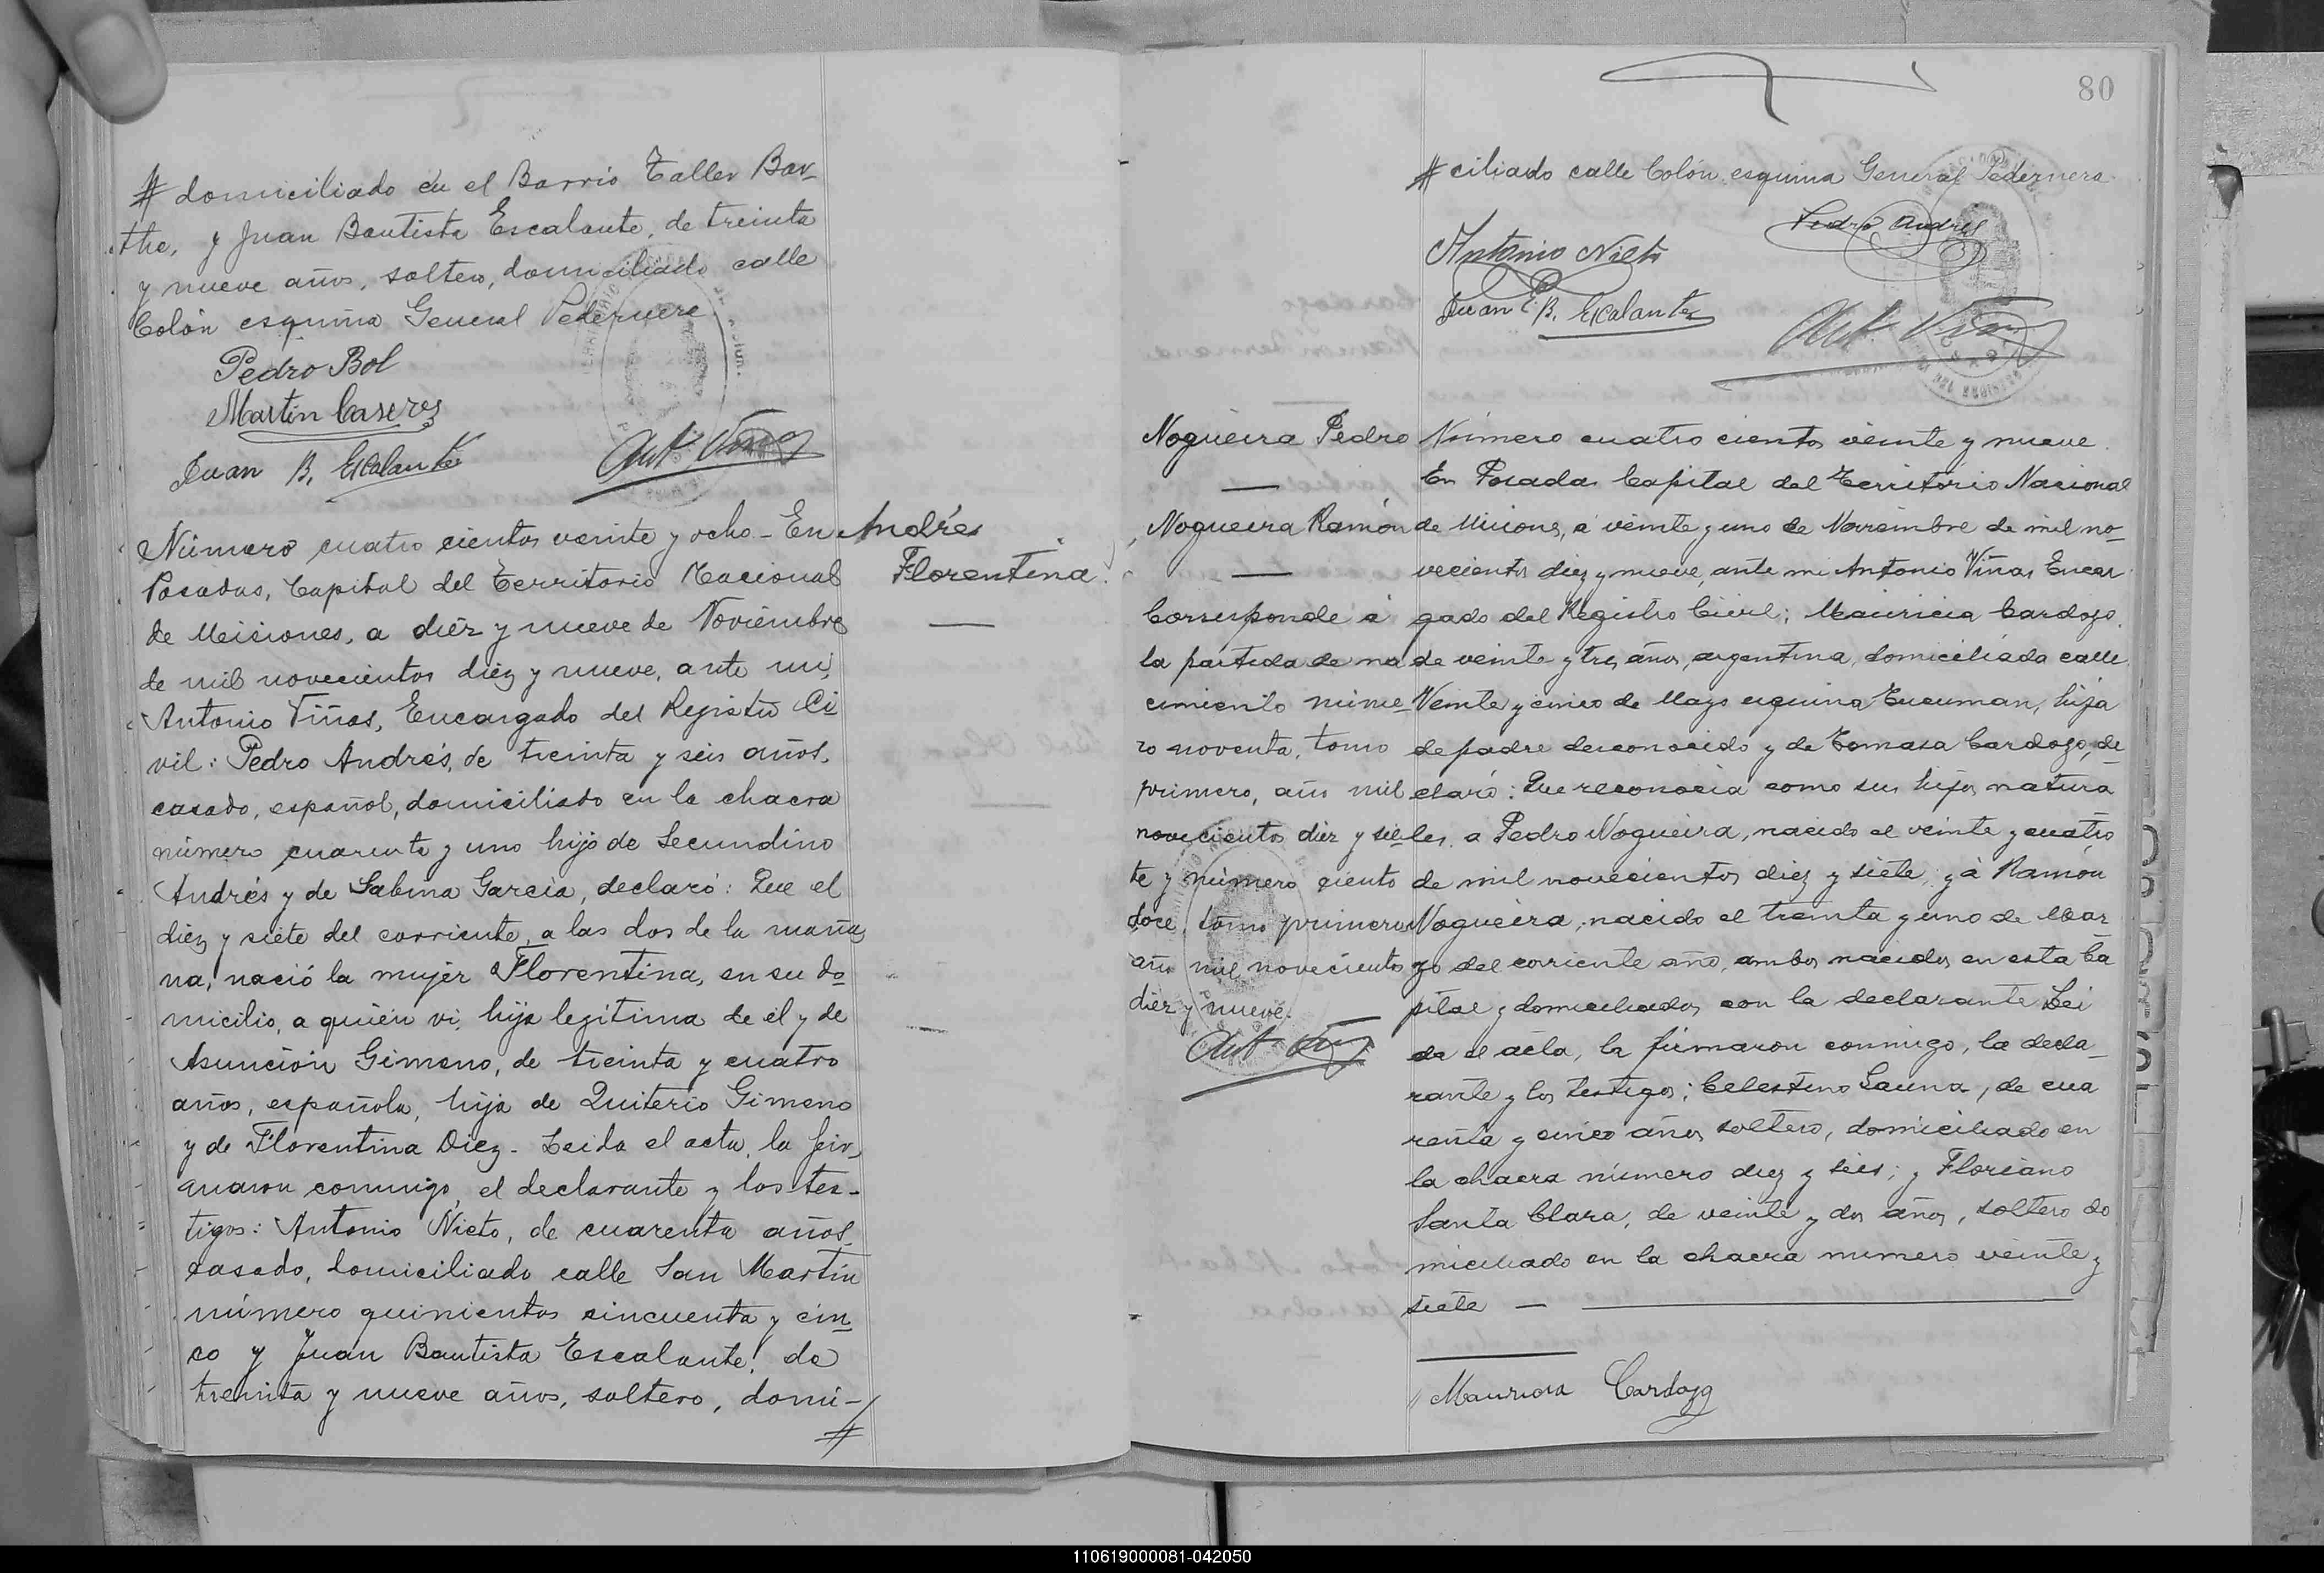 # domiciliado en el Barrio Taller Bar-
the, y Juan Bautista Escalante, de treinta
y nueve años, soltero, domiciliado calle
Colón esquina General Pedernera
Pedro Bol
Martin Caseres
Juan B. Escalante
Ant. Viñas
Número cuatro cientos veinte y ocho - En
Posadas, Capital del Territorio Nacional
de Misiones, a diéz y nueve de Noviembre
de mil novecientos diez y nueve, ante mi,
Antonio Viñas, Encargado del Registro Ci
vil: Pedro Andrés, de treinta y seis años,
casado, español, domiciliado en la chacra
número cuarenta y uno hijo de Secundino
Andrés y de Sabina García, declaró: Que el
diez y siete del corriente, a las dos de la maña
na, nació la mujer Florentina, en su do
micilio, a quién vi, hija legítima de él y de
Asunción Gimeno, de treinta y cuatro
años, española, hija de Quiterio Gimeno
y de Florentina Diez - Leida el acta, la fir
maron conmigo, el declarante y los tes-
tigos: Antonio Nieto, de cuarenta años,
casado, domiciliado calle San Martín
número quinientos cincuenta y cin
co y Juan Bautista Escalante, de
treinta y nueve años, soltero, domi-
#
Andrés
Florentina
80
# ciliado calle Colón esquina General Pedernera
Pedro Andrés
Antonio Nieto
Juan B. Escalante
Ant. Viñas
Nogueira Pedro
Nogueira Ramón
Corresponde á
la partida de na
cimiento núme-
ro noventa, tomo
primero, año mil
novecientos diez y sie-
te y número ciento
doce, tomo primero
año mil novecientos
diez y nueve.
Ant. Viñas
Número cuatro cientos veinte y nueve.
En Posadas Capital del Territorio Nacional
de Misiones, a veinte y uno de Noviembre de mil no-
vecientos diez y nueve, ante mi Antonio Viñas Encar
gado del Registro Civil; Mauricia Cardozo,
de veinte y tres años, argentina, domiciliada calle
Veinte y cinco de Mayo esquina Tucuman, hija
de padre desconocido y de Tomasa Cardozo, de
claró: Que reconocia como sus hijos natura
les, a Pedro Nogueira, nacido el veinte y cuatro
de mil novecientos diez y siete; y á Ramón
Nogueira, nacido el treinta y uno de Mar
zo del corriente año, ambos nacidos en esta Ca
pital y domiciliados con la declarante Lei
da el acta, la firmaron conmigo, la decla-
rante y los testigos; Celestino Launa, de cua
renta y cinco años soltero, domiciliado en
la chacra número diez y seis; y Floriano
Santa Clara, de veinte y dos años, soltero do
miciliado en la chacra numero veinte y
siete
Mauricia Cardozo
110619000081-042050